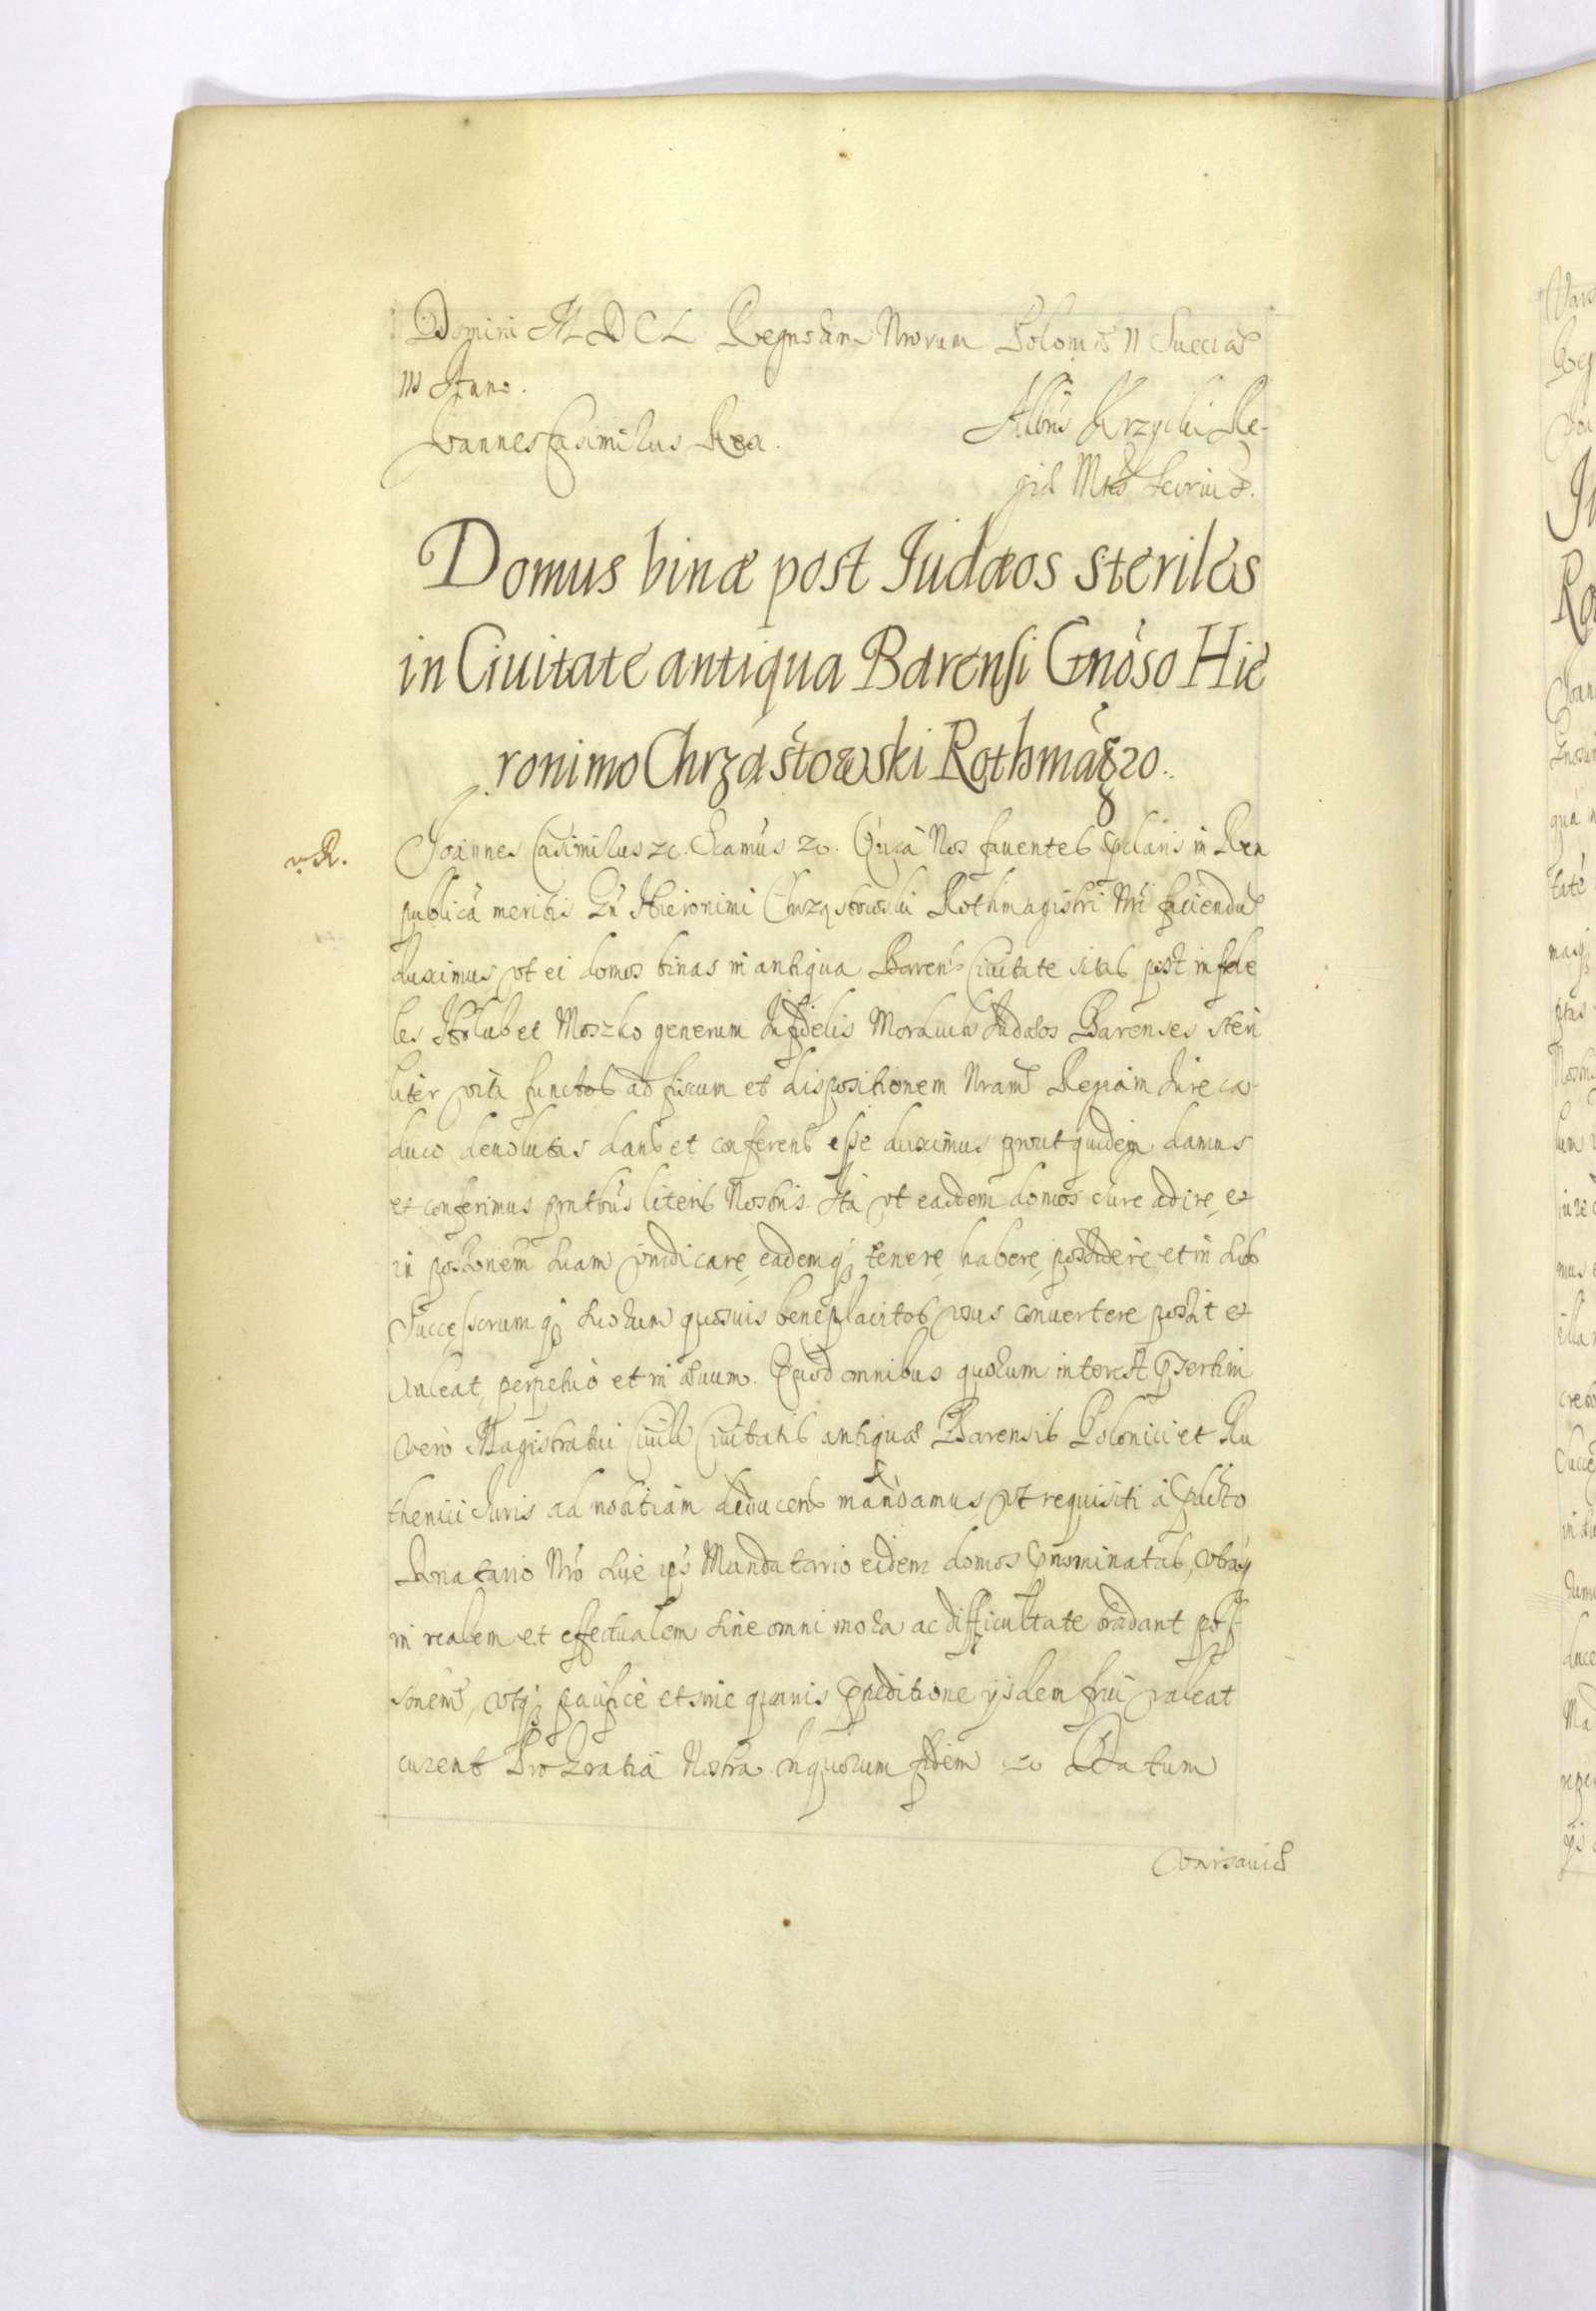 Domini MDCL Regnorum Nrorum Poloniæ II Sueciæ
III Anno.
Joannes Casimirus Rex. Albūs Krzycki Re-
giæ Mtis Secriūs.
Domus binæ post Judæos steriles
in Ciuitate antiqua Barensi Gnoso Hie
ronimo Chrząstowski Rothmagro.
R.
Joannes Casimirus zc. Sĩamus zc. Quia Nos fauentes in Rem
publicā meritis Gñ Hieronimi Chrząstowski Rothmagistri Nri faciendū
duximus vt ei domos binas in antiqua Barens Ciuitate sitas post infide
les Holub et Moszko generum Infidelis Judæos Barenses steri
liter vita functos ad fiscum et dispositionem Nram Regiam Jure ca
duco deuolutas dands et conferends esse duximus prout quidem damus
et conferimus pntbus literis Nostris. Ita vt easdem domos Jure adire, et
in posšionem suam vindicare, easdemq; tenere, habere, possidere, et in suos
Successorumq; suorum quosuis beneplacitos vsus conuertere possit et
valeat, perpetuò et in æuum. Quod omnibus quorum interest psertim
verò Magistratui Ciuili Ciuitatis antiquæ Barensis Polonici et Ru
thenici Juris ad notitiam deducens mandamus, vt requisiti à pdicto
Donatario Nrō siue ips Mandatario eidem domos pnominatas,
in realem et effectualem sine omni mora ac difficultate tradant pos
sionem, vtq; pacificè et sine quauis ijsdem frui valeat
curent Pro gratia Nostra. In quorum fidem zc Datum
Varsauiæ